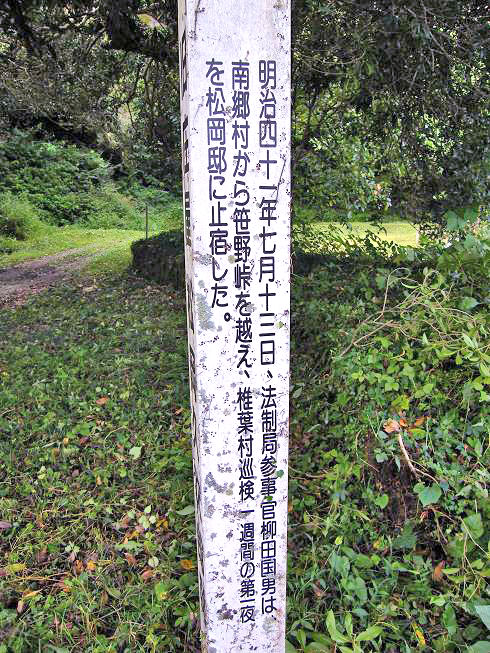 明治四十一年七月十三日、法制局参事官柳田国男は、
南郷村から笹野峠を越え、椎葉村巡検一週間の第一夜
を松岡邸に止宿した。